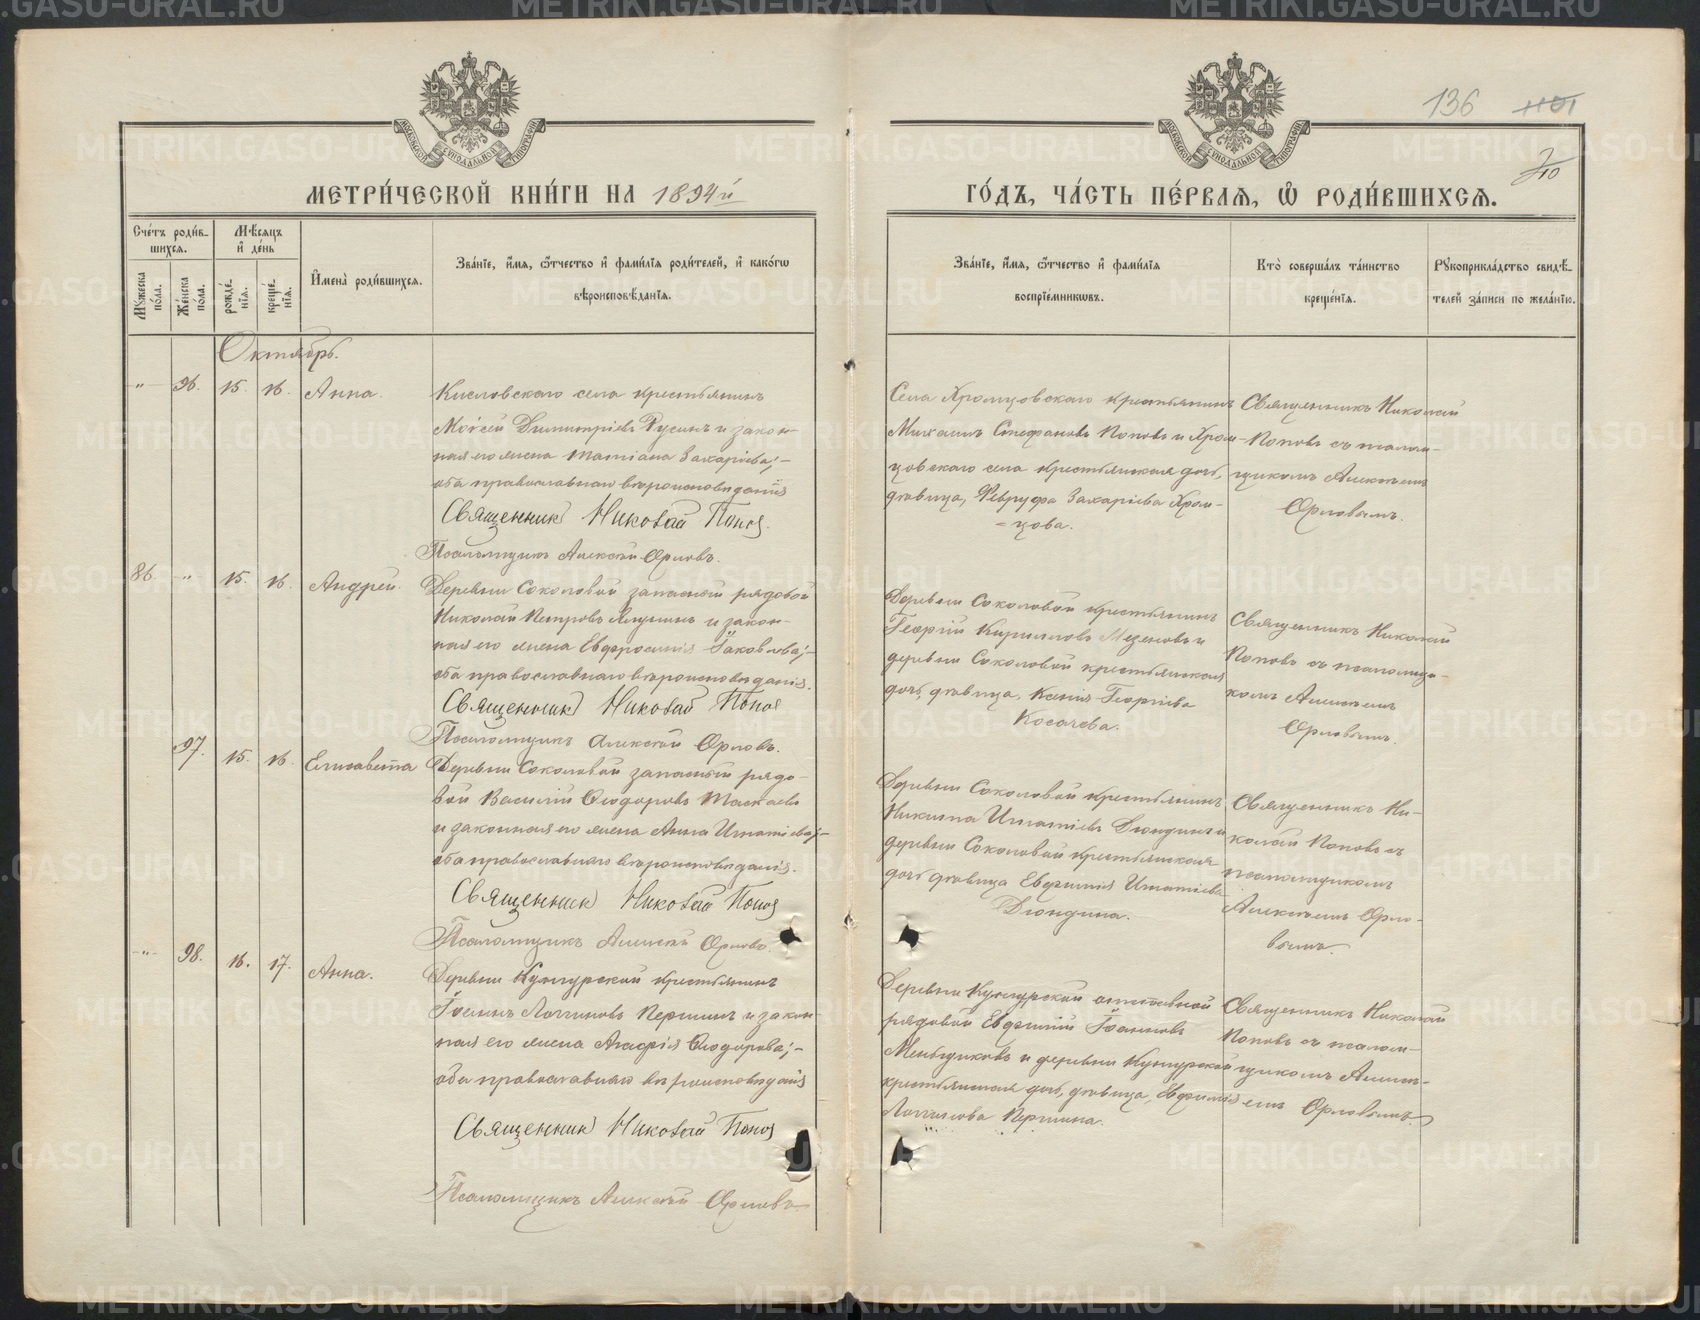 136
МОСКОВСКОЙ СѴНОДАЛЬНОЙ ТИПОГРАФІИ
МОСКОВСКОЙ СѴНОДАЛЬНОЙ ТИПОГРАФІИ
МЕТРИ́ЧЕСКОЙ КНИ́ГИ НА 1894й
ГО́ДЪ, ЧА́СТЬ ПЕ́РВАѦ, Ѽ РОДИ́ВШИХСѦ.
Сче́тъ роди́в-
шихсѧ.
Мꙋжеска по́ла.
Же́нска по́ла.
Мѣ́сѧцъ
и҆ де́нь
рожде́-
нїѧ.
креще́-
нїѧ.
И҆мена̀ роди́вшихсѧ.
Зва́нїе, и҆́мѧ, ѻ҆́тчество и҆ фами́лїѧ роди́телей, и҆ како́гѡ
вѣроисповѣ́данїѧ.
Зва́нїе, и҆́мѧ, ѻ҆́тчество и҆ фами́лїѧ
воспрїе́мникѡвъ.
Кто̀ соверша́лъ та́инство
креще́нїѧ.
Рꙋкоприкла́дство свидѣ́-
телей за́писи по жела́нїю.
Октябрь.
" 96. 15. 16. Анна.
Кисловскаго села крестьянинъ
Моѵсей Димитріевъ Русинъ и закон-
ная его жена Татіана Захаріева;-
оба православнаго вѣроисповѣданія
Священникъ Николай Попов.
Псаломщикъ Алексѣй Орловъ.
Села Хромцовскаго крестьянинъ
Михаилъ Стефановъ Поповъ и Хром-
цовскаго села крестьянская дочь,
дѣвица, Ревруфа Захаріева Хром-
=цова.
Священникъ Николай
Поповъ съ псалом-
щикомъ Алексѣемъ
Орловымъ.
86. " 15. 16. Андрей.
Деревни Соколовой запасный рядовой
Николай Петровъ и закон-
ная его жена Евфросинія Іаковлева;-
оба православнаго вѣроисповѣданія.
Священникъ Николай Попов
Псаломщикъ Алексѣй Орловъ.
Деревни Соколовой крестьянинъ
Георгій Кирилловъ Мезеновъ и
деревни Соколовой крестьянская
дочь, дѣвица, Ксенія Георгіева
Косачева.
Священникъ Николай
Поповъ съ псаломщи-
комъ Алексѣемъ
Орловымъ.
97. 15. 16. Елисавета
Деревни Соколовой запасный рядо-
вой Василій Ѳеодоровъ Таскаевъ
и законная его жена Анна Игнатіева;-
оба православнаго вѣроисповѣданія.
Священникъ Николай Попов
Псаломщикъ Алексѣй Орловъ
Деревни Соколовой крестьянинъ
Никита Игнатіевъ Дюндинъ и
деревни Соколовой крестьянская
дочь дѣвица Евфимія Игнатіева
Дюндина.
Священникъ Ни-
колай Поповъ съ
псаломщикомъ
Алексѣемъ Орло-
вымъ.
" 98. 16. 17. Анна.
Деревни Кунгурской крестьянинъ
Іоаннъ Логгиновъ Першинъ и закон-
ная его жена Агафія Ѳеодорова;-
оба православнаго вѣроисповѣданія
Священникъ Николай Попов
Псаломщикъ Алексѣй Орловъ
Деревни Кунгурской отставной
рядовой Евфимій Іоанновъ
Меньщиковъ и деревни Кунгурской
крестьянская дочь, дѣвица, Евфимія
Логгинова Першина.
Священникъ Николай
Поповъ съ псалом-
щикомъ Алексѣ-
емъ Орловымъ